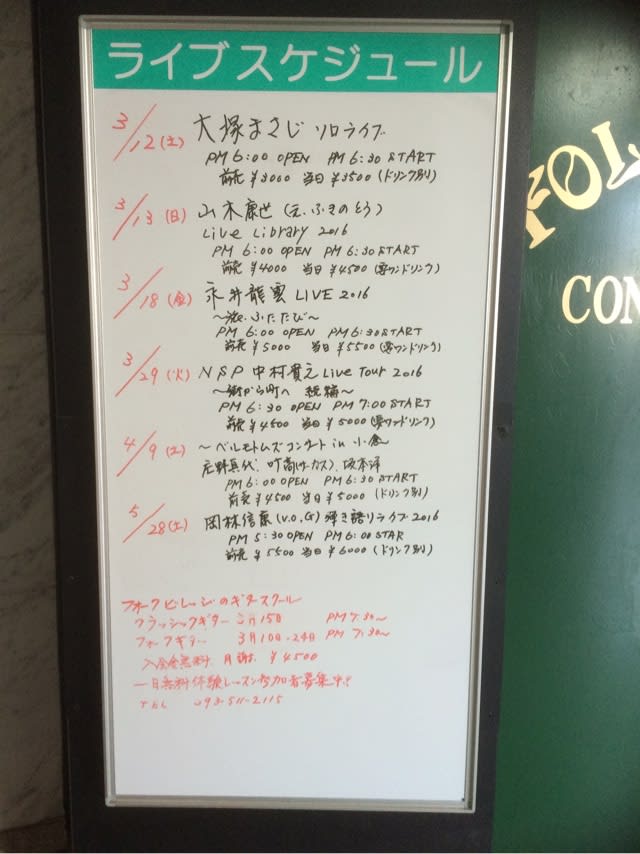 ライブスケジュール
3/12(土) 大塚まさじ ソロライブ
PM 6:00 OPEN PM 6:30 START
前売 ¥3000 当日 ¥3500 (ドリンク別)
3/13(日) 山木康世 (元.ふきのとう)
Live Library 2016
PM 6:00 OPEN PM 6:30 START
前売 ¥4000 当日 ¥4500 (要ワンドリンク)
3/18(金) 永井龍雲 LIVE 2016
〜旅、ふたたび〜
PM 6:00 OPEN PM 6:30 START
前売 ¥5000 当日 ¥5500 (要ワンドリンク)
3/29(火) NSP 中村貴之 Live Tour 2016
〜街から町へ 続編〜
PM 6:30 OPEN PM 7:00 START
前売 ¥4500 当日 ¥5000 (要ワンドリンク)
4/9(土) 〜ベルモトムズコンサート in 小倉
庄野真代、叶高(サーカス)、坂本洋
PM 6:00 OPEN PM 6:30 START
前売 ¥4500 当日 ¥5000 (ドリンク別)
5/28(土) 岡林信康 (V.O.G) 弾き語りライブ2016
PM 5:30 OPEN PM 6:00 STAR
前売 ¥5500 当日 ¥6000 (ドリンク別)
フォークビレッジのギタースクール
クラッシックギター 3月15日 PM 7:30〜
フォークギター 3月10日・24日 PM 7:30〜
入会金無料 月謝 ¥4500
一日無料体験レッスン参加者募集中!
TEL 093-511-2115
FOL
CON